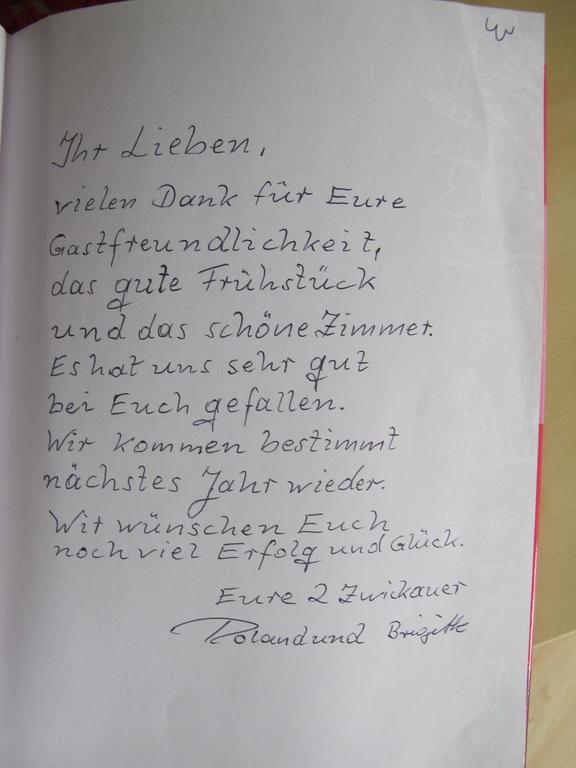 Ihr Lieben,
vielen Dank für Eure
Gastfreundlichkeit,
das gute Frühstück
und das schöne Zimmer.
Es hat uns sehr gut
bei Euch gefallen.
Wir kommen bestimmt
nächstes Jahr wieder.
Wir wünschen Euch
noch viel Erfolg und Glück.
Eure 2 Zwickauer
Roland und Brigitte